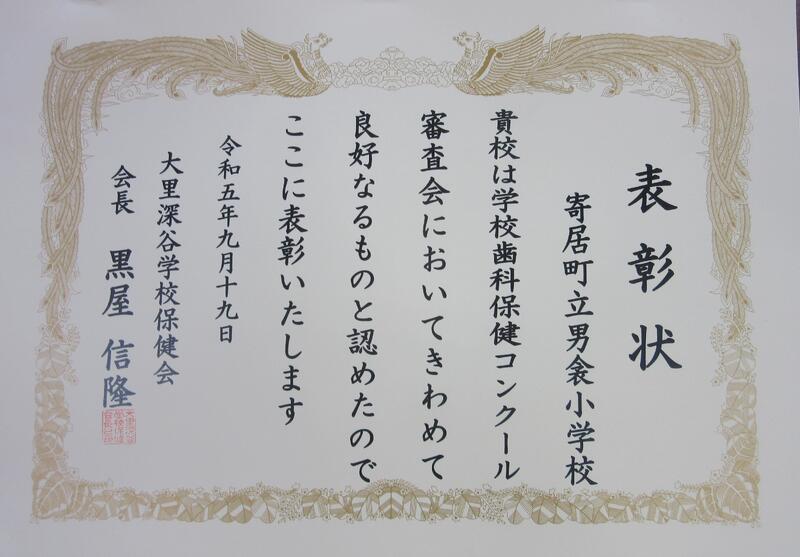 表彰状
寄居町立男衾小学校
貴校は学校歯科保健コンクール
審査会においてきわめて
良好なるものと認めたので
ここに表彰いたします
令和五年九月十九日
大里深谷学校保健会
会長 黒屋信隆